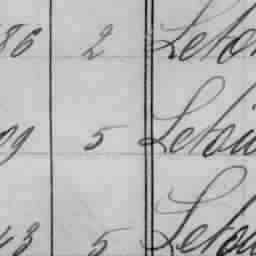 86 2 Leto
09 5 Letou
43 5 Letou